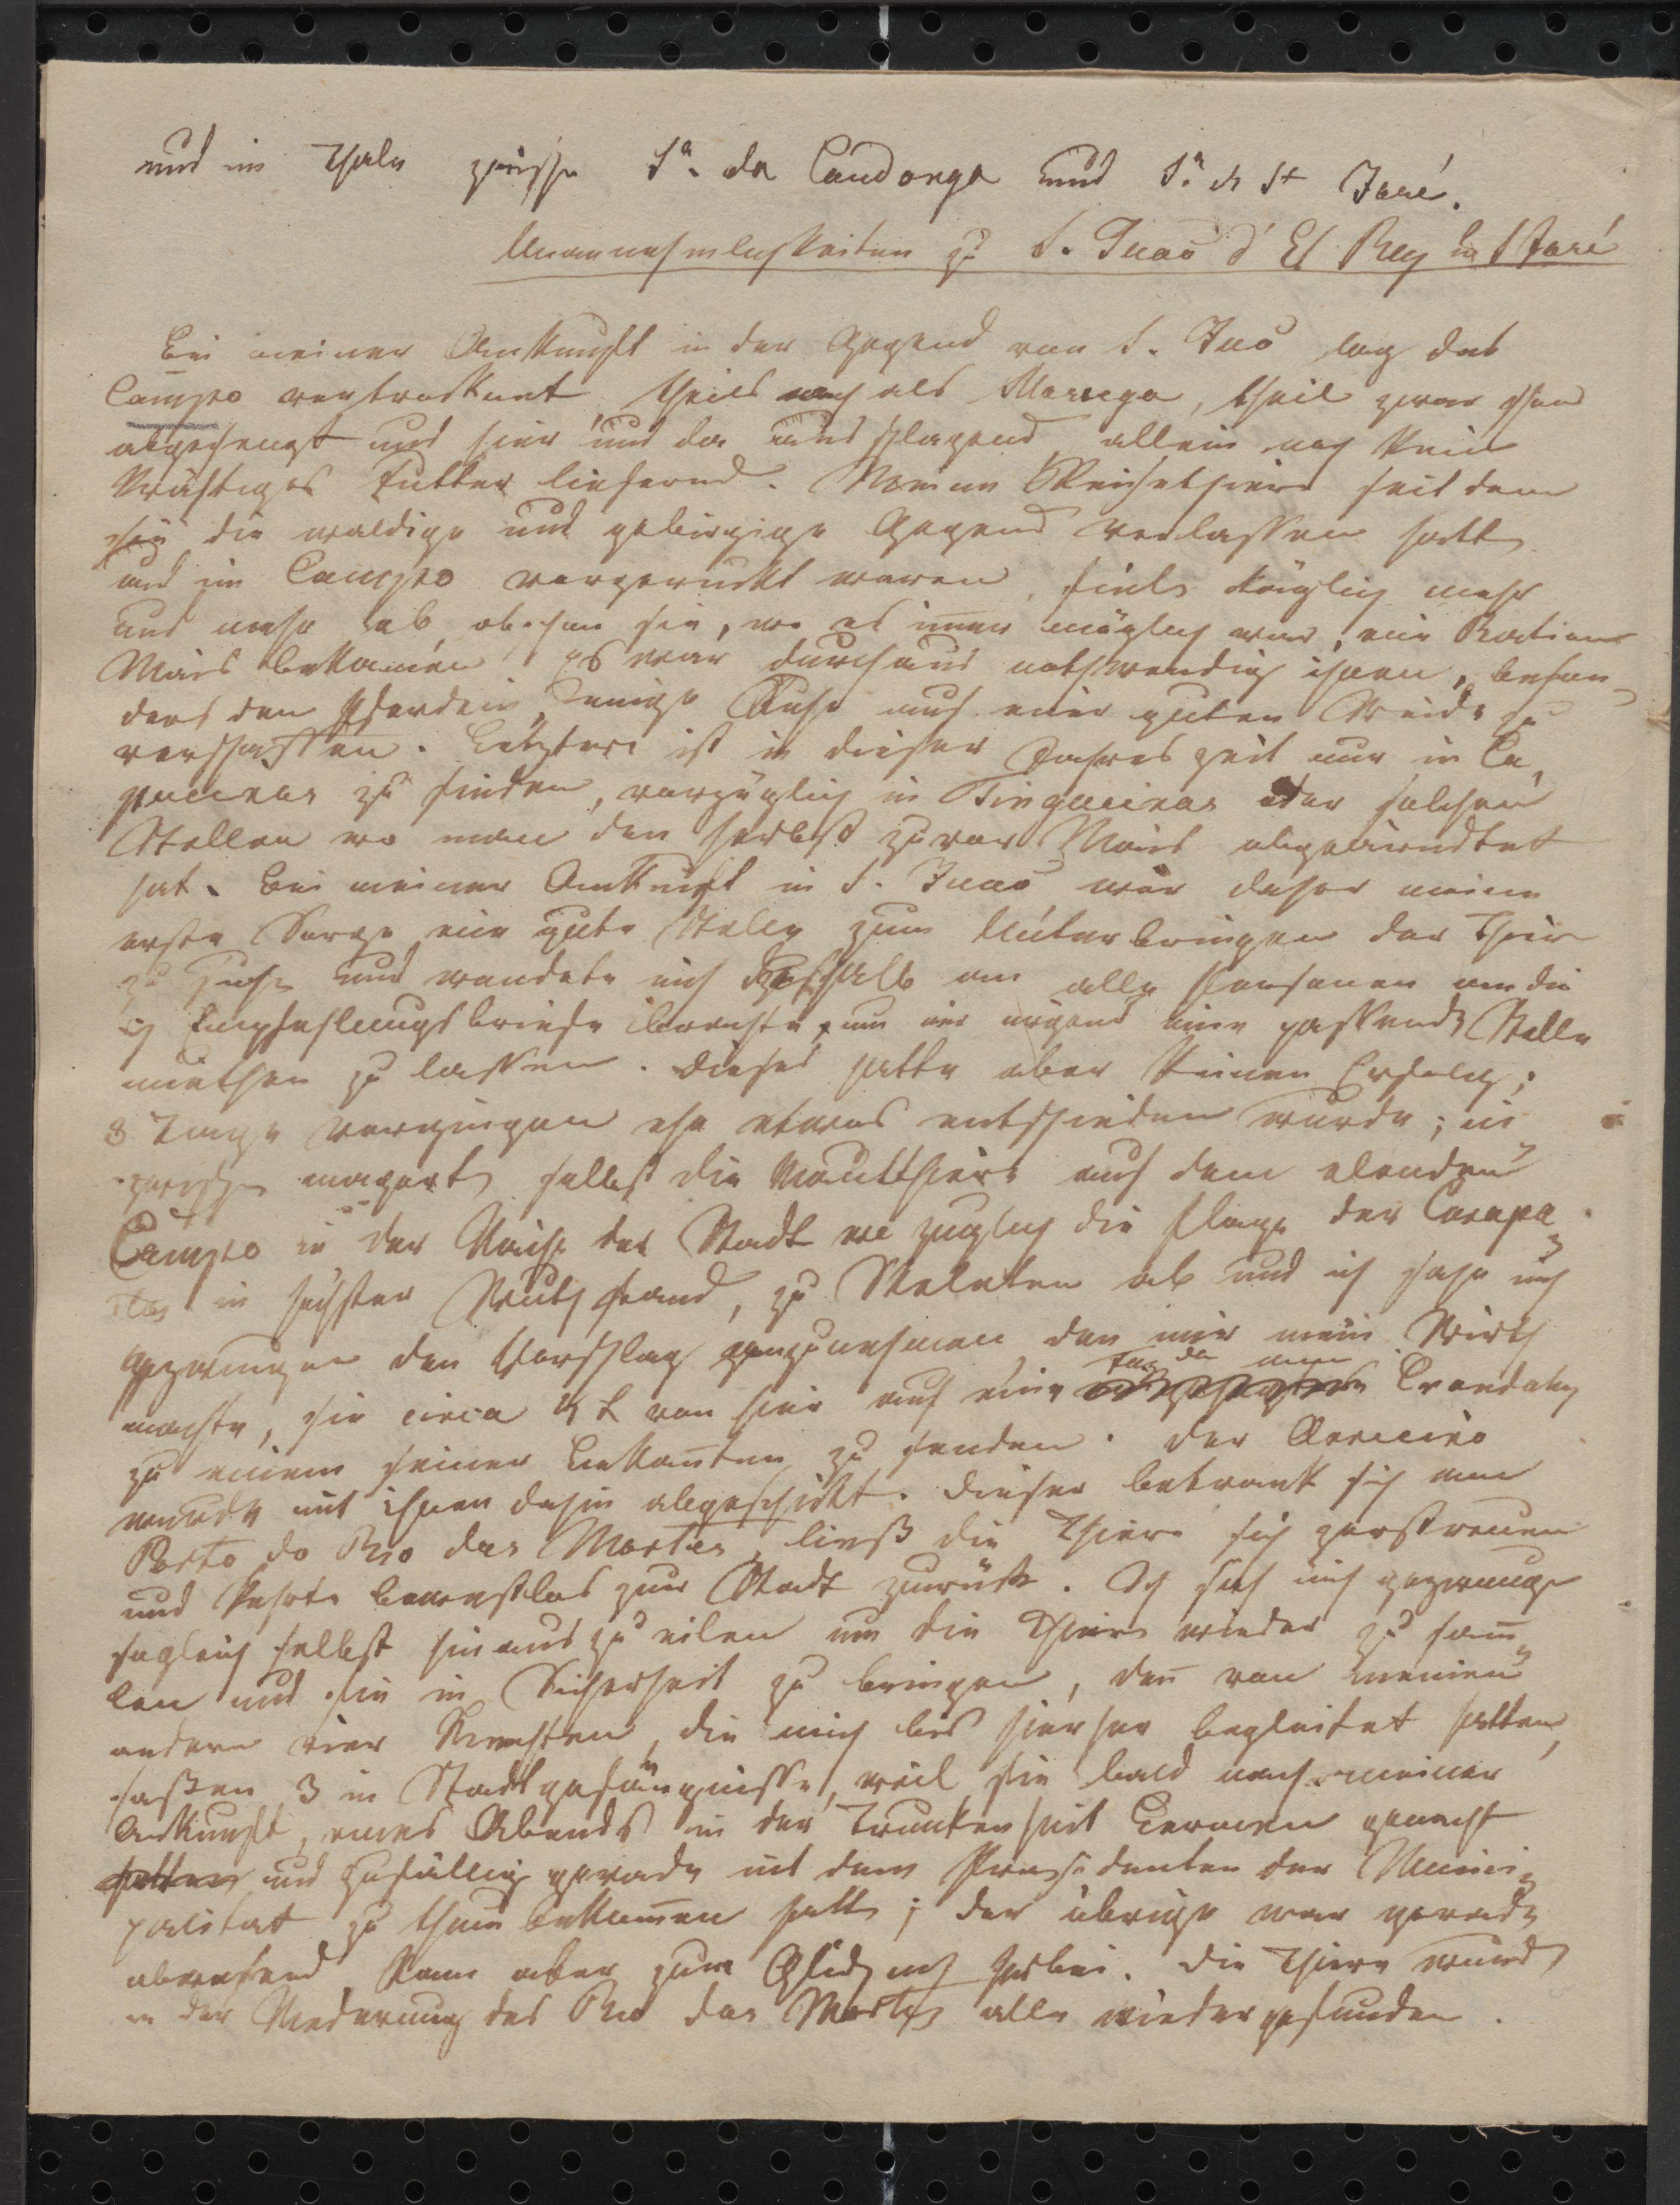 und im Thale zwische Sa. da Candonga und Sa. de St José.
Unannehmlichkeiten zu S. Juaõ d' El Rey u S José
Bei meiner Ankunft in der Gegend von S. Juaõ lag das
Campo vertrocknet, theils noch als Macega, theil zwar schon
abgesengt und hier und da ausschlagend allein noch kein
kräftiges Futter liefernd. Meine Reisethiere seit dem
sie die waldige und gebirgige Gegend verlassen hatte
und im Campo vorgerückt waren, fiele täglich mehr
und mehr ab, obschon sie, wo es im̄er möglich war, eine Ration
Mais bekamen. Es war durchaus nothwendig ihnen, beson-
ders den Pferden, einige Ruhe auf einer guten Weide zu
verschaffen. Letztere ist in dieser Jahreszeit nur in Ca-
pueiras zu finden, vorzüglich in Tingueiras oder solchen
Stellen wo man den Herbst zuvor Mais abgeärndtet
hat. Bei meiner Ankunft in S. Juaõ war daher meine
erste Sorge eine gute Stelle zum Unterbringen der Thiere
zu suche und wandete mich deshalb an alle Personen an die
ich Empfehlungsbriefe brachte, um mir irgend eine passende Stelle
miethen zu lassen. Dieses hatte aber keinen Erfolg;
8 Tage vergingen ehe etwas entschieden wurde; in
zwische magerte selbst die Maulthiere auf dem elenden
Campo in der Nähe der Stadt wo zugleich die Plage der Carapa-
tos in höchster Wuth stand, zu Skeleten ab und ich sahe mich
gezwungen den Vorschlag anzunehmen den mir mein Wirth
machte, sie circa 4 L von hier auf eine Fazda nun Crandahy
zu einem seiner Bekan̄ten zu senden. Der Arrieiro
wurde mit ihnen dahin abgeschickt. Dieser betrank sich am
Porto do Rio das Mortes, ließ die Thiere sich zerstreuen
und kehrte bewußtlos zur Stadt zurück. Ich sah mich gezwunge
sogleich selbst hinaus zu eilen um die Thiere wieder zu sam̄-
len und sie in Sicherheit zu bringen, den̄ von meinen
andern vier Knechten, die mich bis hierher begleitet hatten,
saßen 3 in Stadtgefängnisse, weil sie bald nach meiner
Ankunft, eines Abends in der Trunkenheit Lermen gemacht
hatten und zufällig gerade mit dem Präsidenten der Munici-
palitat zu thun bekom̄en hatte; der übrige war gerade
abwesend kam aber zum Glück noch herbei. Die Thiere wurde
in der Niederung des Rio das Mortes alle wiedergefunden.